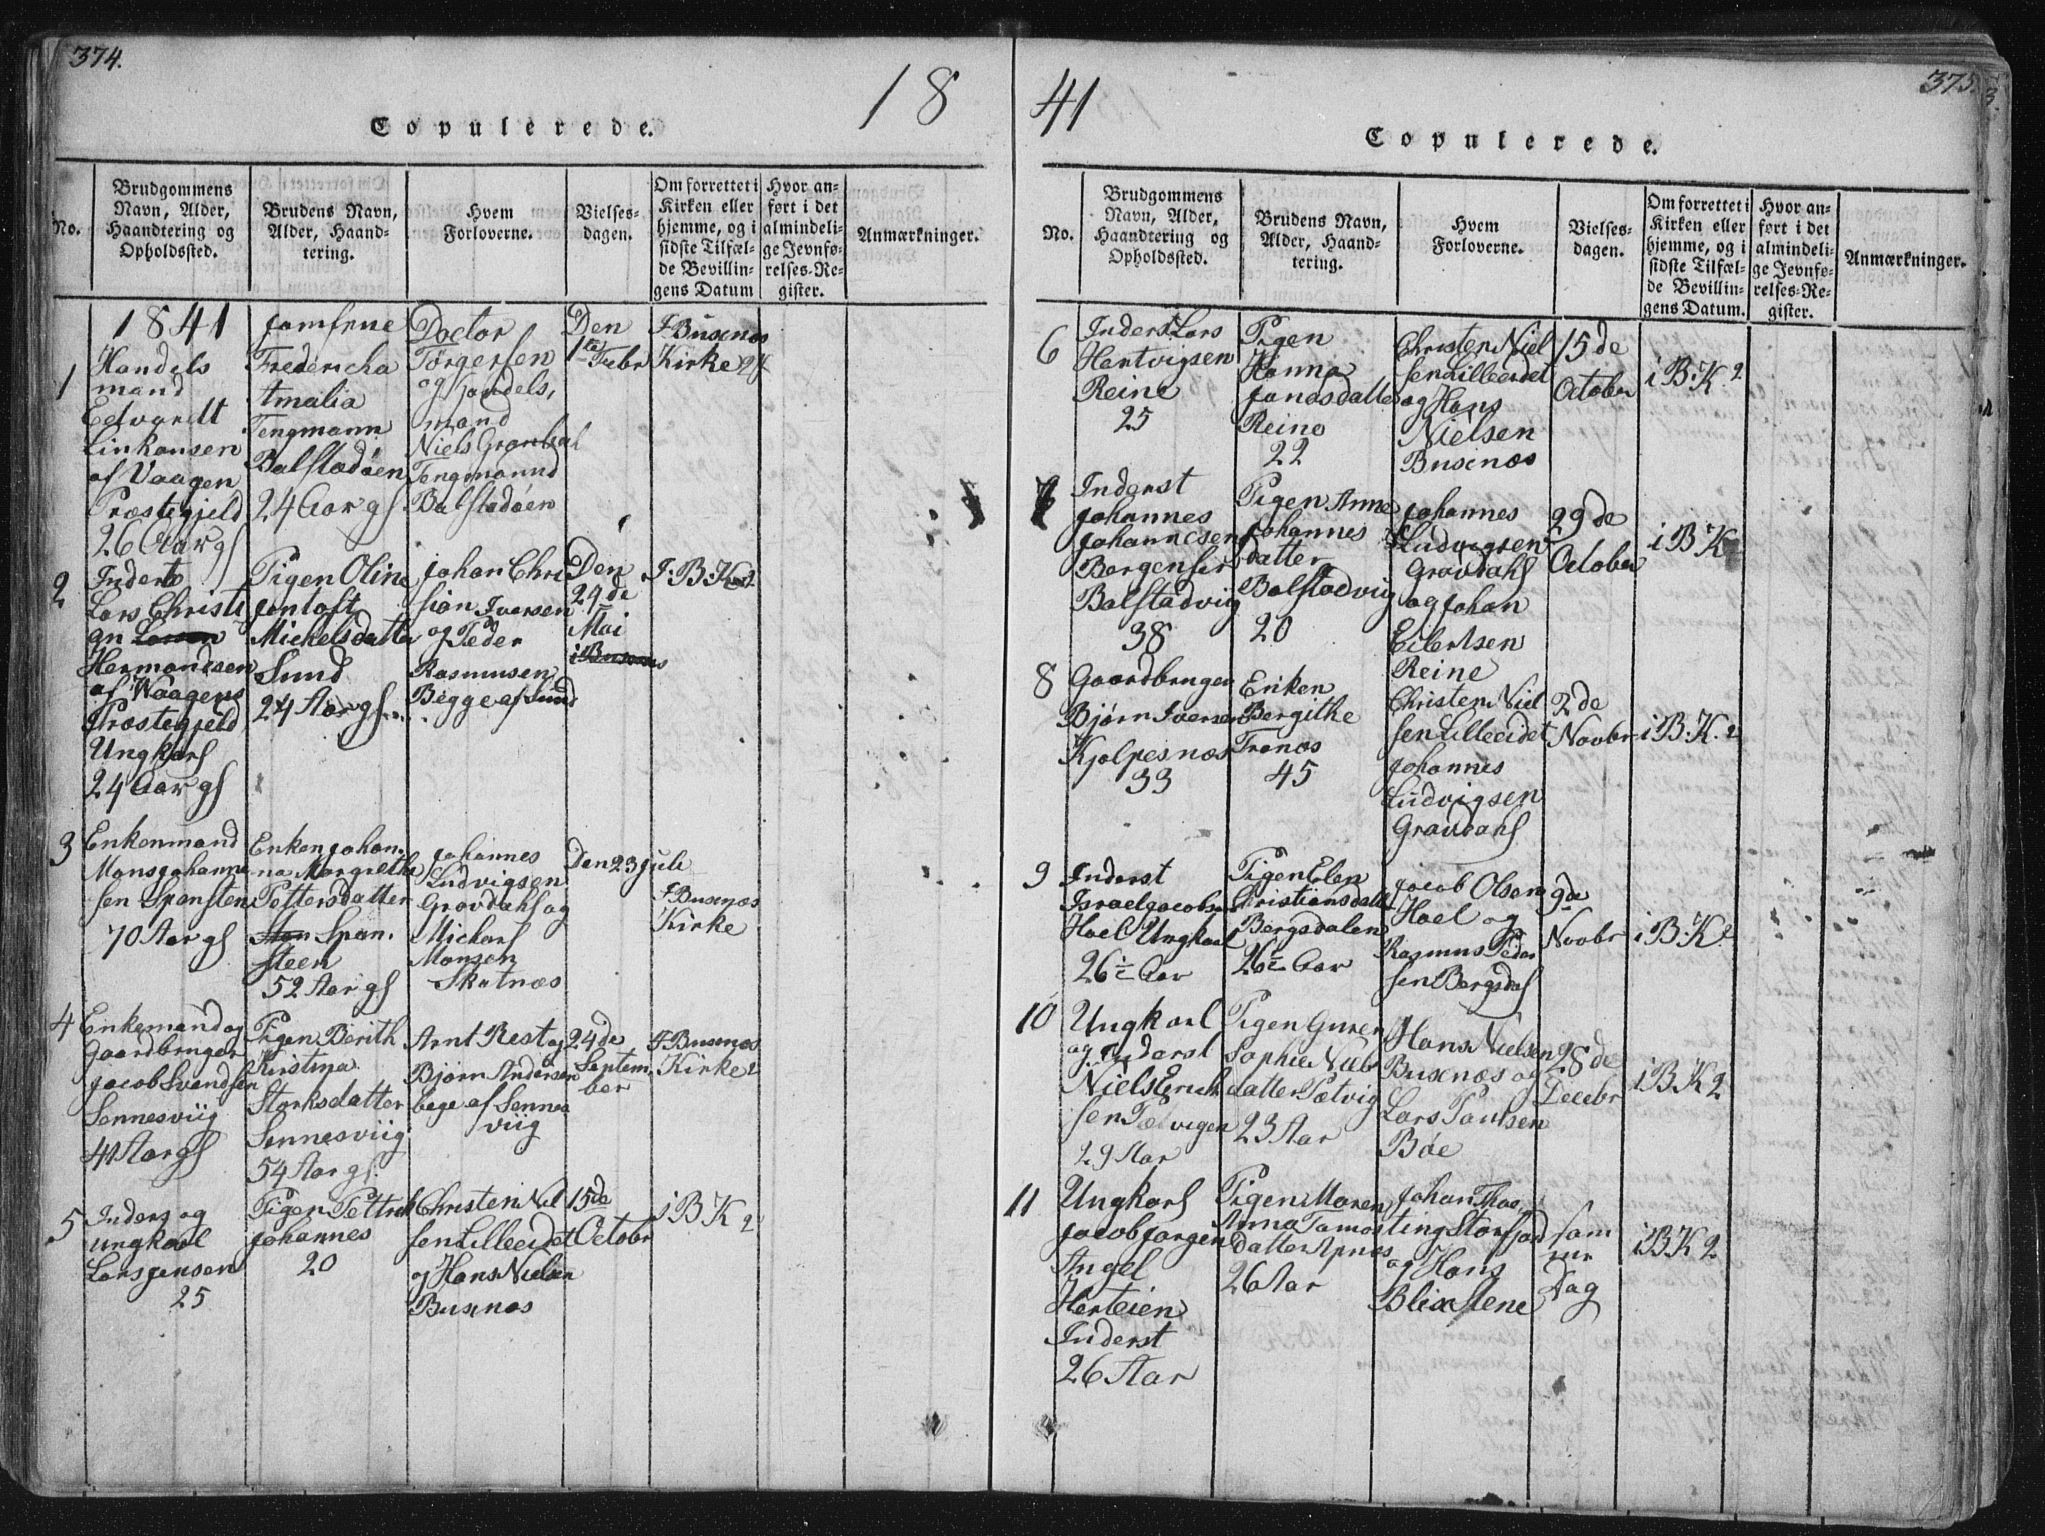 374.
18
Copulerede.
No.
Brudgommens
Navn, Alder,
Haandtering og
Opholdssted.
Brudens Navn,
Alder, Haand-
tering.
Hvem
Forloverne.
Vielses-
dagen.
Om forrettet i
Kirken eller
hjemme, og i
sidste Tilfæl-
de Bevillin-
gens Datum
Hvor an-
ført i det
almindeli-
ge Jevnfø-
relses-Re-
gister.
Anmærkninger.
1841
1
Handels
mand
Edvardt
Linkansen
af Vaagen
Præstegjeld
26 Aar gl
Jomfrue
Fredericha
Amalia
Tengmann
Balstadøen
24 Aar gl
Doctor
Tørgersen
og Handels,
mand
Niels
Tengmannd
Balstadøen
Den
1te
Febr
I Busenæs
Kirke
2
Inderst
Lars Christi
an Larsen
Hermandsen
af Waagens
Præstegjeld
Ungkarl
24 Aar gl
Pigen Oline
Jentoft
Michelsdatter
Sund
24 Aar gl
Johan Chri
sian Iversen
og Peder
Rasmusen
Begge af Sund
Den
24de
Mai
i Busenæs
I: B: K:
3
Enkenmand
Mons Johanne
sen Spansten
70 Aar gl
Enken Johan.
na Margrethe
Pettersdatter
Span.
steen
52 Aar gl
Johannes
Ludvigsen
Gravdahl og
Michael
Monsen
Skatnæs
Den 23 Juli
I Busenæs
Kirke
4
Enkemand og
Gaardbruger
Jacob Svendsen
Sennesviig
41 Aar gl
Pigen Berith
Kirstina
Storksdatter
Sennesviig
54 Aar gl.
Arnt Rest og
Bjørn Andersen
bege af Sennes
viig
24de
Septem,
ber
I Busenæs
Kirke 2
5
Inders og
ungkarl
Lars Jensen
25
Pigen Pettrek
Johannes
20
Christen Niel
sen Lilleeidet
og Hans Nielsen
Busenæs
15de
Octobr
i B K 2
375.
41
Copulerede.
No.
Brudgommens
Navn, Alder,
Haandtering og
Opholdssted.
Brudens Navn,
Alder, Haand-
tering.
Hvem
Forloverne.
Vielses-
dagen.
Om forrettet i
Kirken eller
hjemme, og i
sidste Tilfæl-
de Bevillin-
gens Datum.
Hvor an-
ført i det
almindeli-
ge Jevnfø-
relses-Re-
gister.
Anmærkninger.
6
Inderst Lars
Hertvigsen
Reine
25
Pigen
Hanna
Jonasdatter
Reine
22
Christen Niel
sen Lilleeidet
og Hans
Nielsen
Busenæs
15de
October
i B: K 2
7
Inderst
Johannes
Johannesen
Bergenser
Balstadviig
38
Pigen Anne
Johannes
datter
Balstadviig
20
Johannes
Ludvigsen
Gravdahl
og Johan
Eilertsen
Reine
29de
October
i B: K
8
Gaardbruger
Bjørn Iversen
Kjolpesnæs
33
Enken
Bergithe
Tranæs
45
Christen Niel
sen Lilleeidet
Johannes
Ludvigsen
Gravdahl
2de
Novbr
i B: K. 2
9
Inderst
Israel Jacobsen
Hoel Ungkarl
26 1/2 Aar
Pigen Elen
Christiansdatter
Bergsdalen
26 1/2 Aar
Jacob Olsen
Hoel og
Rasmus Peder
sen Bergsdal
9de
Novbr
i B: K 2
10
Ungkarl
og Inderst
Niels Erich
sen Petvigen
29 Aar
Pigen Guren
Sophie Niels
datter Petvig
23 Aar
Hans Nielsen
Busenæs og
Lars Paulsen
Bøe
28de
Decebr
i B K 2
11
Ungkarl
Jacob Jørgen
Angel
Herteien
Inderst
26 Aar
Pigen Maren
Anna Tamos
datter Apnes
26 Aar
Johan Thae,
ting Storfjord
og Hans
Blixstene
sam
me
Dag
i B K 2